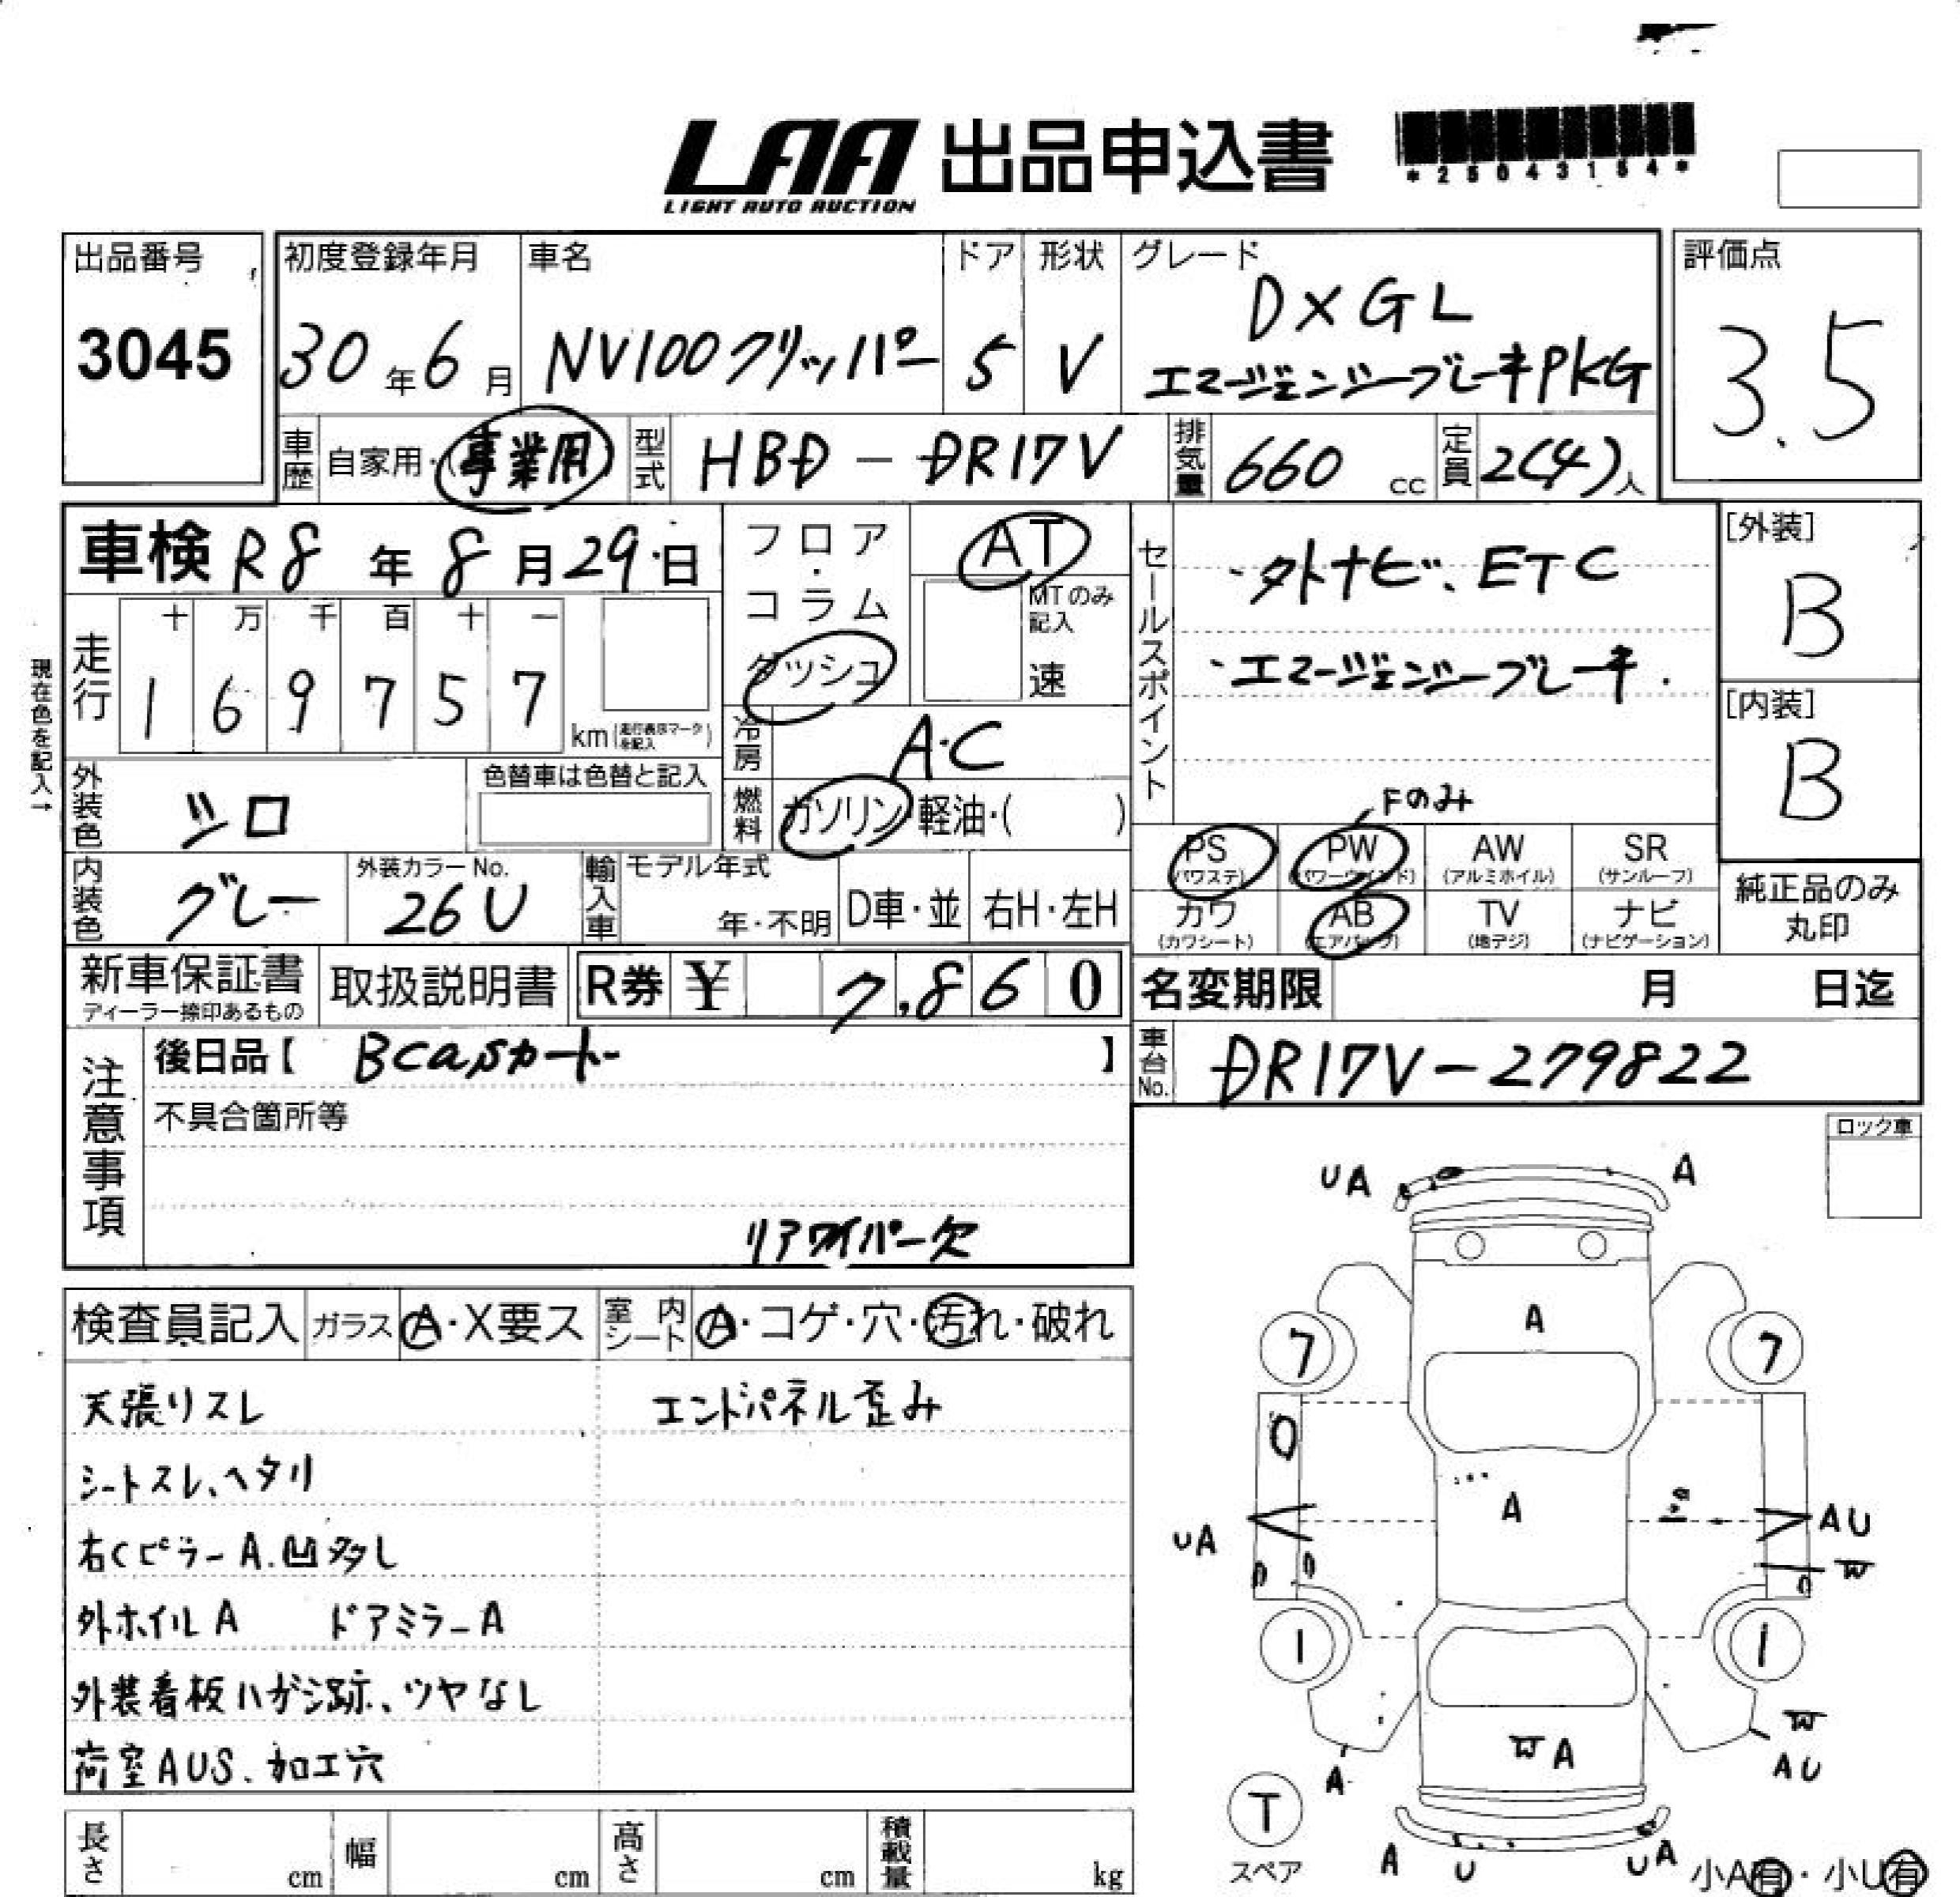 LAA 出品申込書
LIGHT AUTO AUCTION
*25043154*
出品番号
3045
初度登録年月
30年6月
車名
NV100クリッパー
ドア
5
形状
V
グレード
DXGL
エマージェンジーブレーキPKG
評価点
3.5
車歴
自家用・(事業用)
型式
HBD-DR17V
排気量
660 cc
定員
2(4)人
車検 R8年8月29日
フロア・コラム
ダッシュ
AT
MTのみ記入
速
セールスポイント
・外ナビ、ETC
・エマージェンジーブレーキ.
[外装]
B
[内装]
B
現在色を記入→
走行
十 万 千 百 十 一
1 6 9 7 5 7
km(走行表示マークを記入)
冷房
A・C
外装色
シロ
色替車は色替と記入
燃料
ガソリン・軽油・( )
内装色
グレー
外装カラーNo.
26U
輸入車
モデル年式
年・不明
D車・並
右H・左H
Fのみ
PS (パワステ)
PW (パワーウインド)
AW (アルミホイル)
SR (サンルーフ)
カワ (カワシート)
AB (エアバッグ)
TV (地デジ)
ナビ (ナビゲーション)
純正品のみ丸印
新車保証書
ディーラー捺印あるもの
取扱説明書
R券 ¥ 7,860
名変期限 月 日迄
注意事項
後日品【 Bcasカード 】
車台No.
DR17V-279822
不具合箇所等
リアワイパー欠
ロック車
検査員記入
ガラス
A・X要ス
室内シート
A・コゲ・穴・汚れ・破れ
天張リスレ
エンドパネル歪み
シートスレ、ヘタリ
右Cピラー A.凹多し
外ホイルA ドアミラーA
外装看板ハガシ跡、ツヤなし
荷室AUS、加工穴
UA
A
A
7
7
A
UA
AU
W
1
1
W
AU
W A
A
T
スペア
A
U
UA
小A有・小U有
長さ cm
幅 cm
高さ cm
積載量 kg